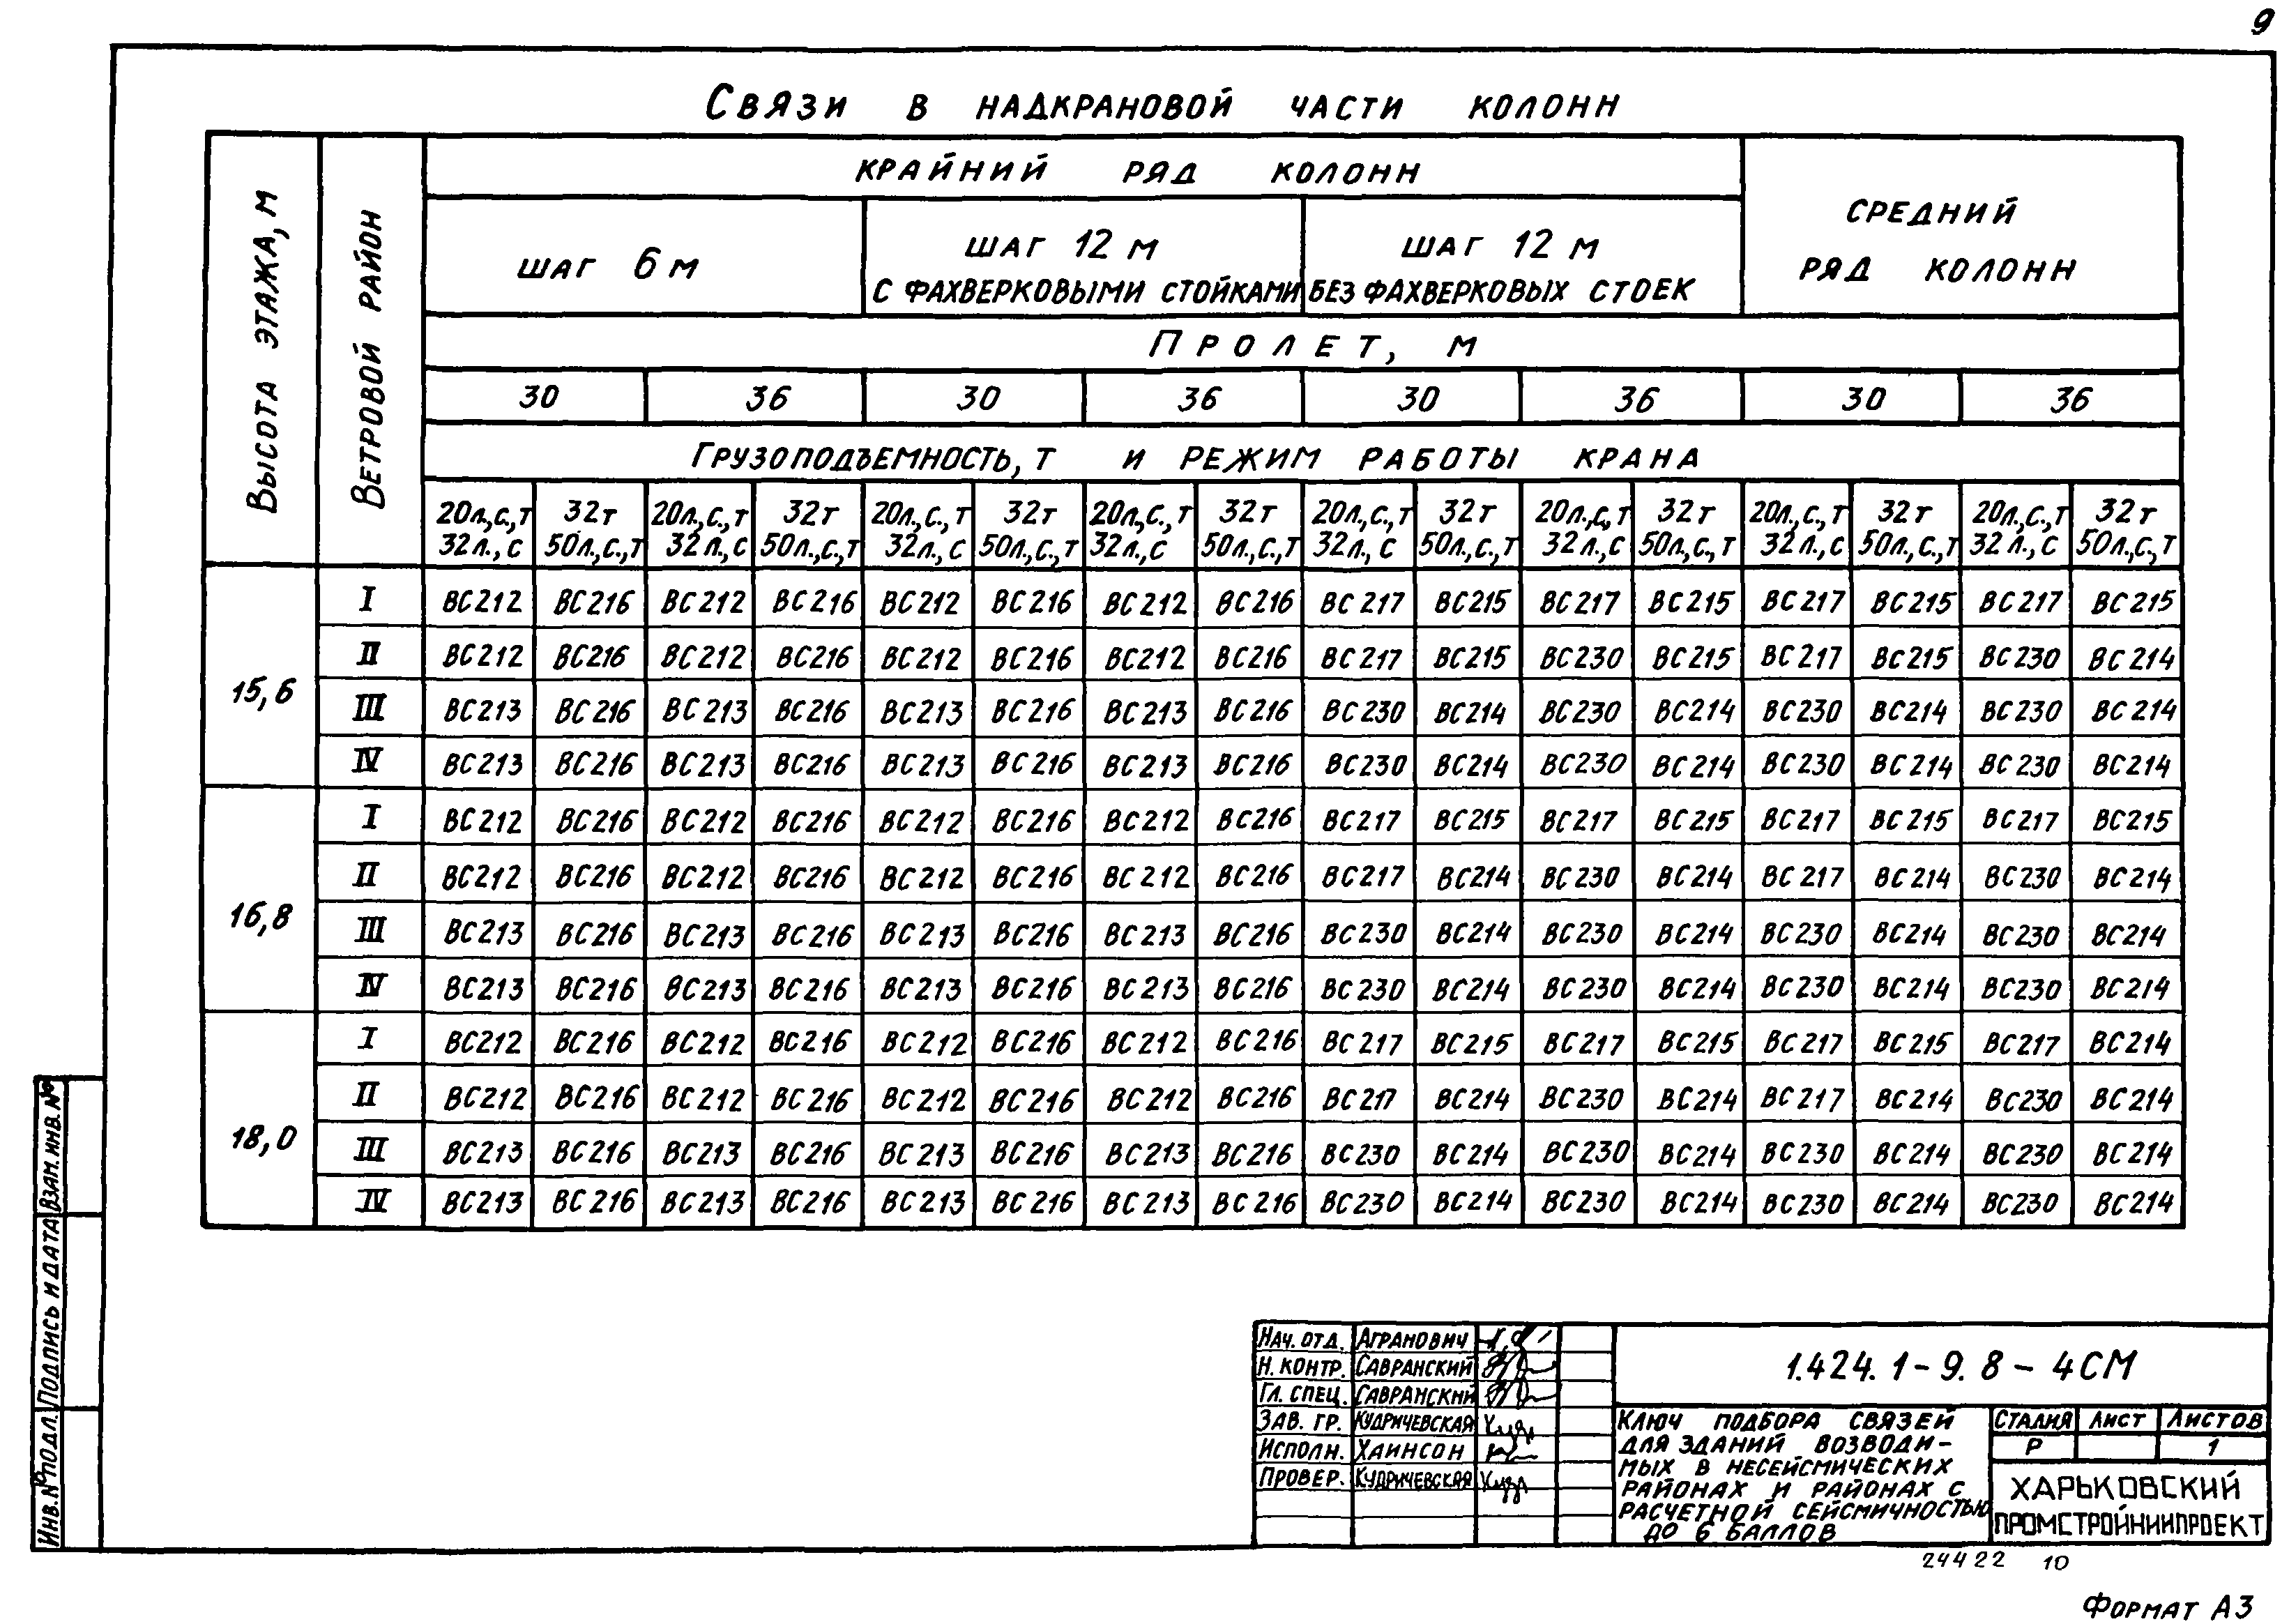 9
Связи в надкрановой части колонн
Высота этажа, м
Ветровой район
крайний ряд колонн
средний ряд колонн
шаг 6 м
шаг 12 м с фахверковыми стойками
шаг 12 м без фахверковых стоек
Пролет, м
30 36 30 36 30 36 30 36
Грузоподъемность, т и режим работы крана
20л.,с.,т 32т 20л.,с.,т 32т 20л.,с.,т 32т 20л.,с.,т 32т 20л.,с.,т 32т 20л.,с,т 32т 20л.,с.,т 32т 20л.,с.,т 32т
32л.,с 50л.,с.,т 32л.,с 50л.,с.,т 32л.,с 50л.,с.,т 32л.,с 50л.,с.,т 32л.,с 50л.,с.,т 32л.,с 50л.,с.,т 32л.,с 50л.,с.,т 32л.,с 50л.,с.,т
15,6
I ВС212 ВС216 ВС212 ВС216 ВС212 ВС216 ВС212 ВС216 ВС217 ВС215 ВС217 ВС215 ВС217 ВС215 ВС217 ВС215
II ВС212 ВС216 ВС212 ВС216 ВС212 ВС216 ВС212 ВС216 ВС217 ВС215 ВС230 ВС215 ВС217 ВС215 ВС230 ВС214
III ВС213 ВС216 ВС213 ВС216 ВС213 ВС216 ВС213 ВС216 ВС230 ВС214 ВС230 ВС214 ВС230 ВС214 ВС230 ВС214
IV ВС213 ВС216 ВС213 ВС216 ВС213 ВС216 ВС213 ВС216 ВС230 ВС214 ВС230 ВС214 ВС230 ВС214 ВС230 ВС214
16,8
I ВС212 ВС216 ВС212 ВС216 ВС212 ВС216 ВС212 ВС216 ВС217 ВС215 ВС217 ВС215 ВС217 ВС215 ВС217 ВС215
II ВС212 ВС216 ВС212 ВС216 ВС212 ВС216 ВС212 ВС216 ВС217 ВС214 ВС230 ВС214 ВС217 ВС214 ВС230 ВС214
III ВС213 ВС216 ВС213 ВС216 ВС213 ВС216 ВС213 ВС216 ВС230 ВС214 ВС230 ВС214 ВС230 ВС214 ВС230 ВС214
IV ВС213 ВС216 ВС213 ВС216 ВС213 ВС216 ВС213 ВС216 ВС230 ВС214 ВС230 ВС214 ВС230 ВС214 ВС230 ВС214
18,0
I ВС212 ВС216 ВС212 ВС216 ВС212 ВС216 ВС212 ВС216 ВС217 ВС215 ВС217 ВС215 ВС217 ВС215 ВС217 ВС214
II ВС212 ВС216 ВС212 ВС216 ВС212 ВС216 ВС212 ВС216 ВС217 ВС214 ВС230 ВС214 ВС217 ВС214 ВС230 ВС214
III ВС213 ВС216 ВС213 ВС216 ВС213 ВС216 ВС213 ВС216 ВС230 ВС214 ВС230 ВС214 ВС230 ВС214 ВС230 ВС214
IV ВС213 ВС216 ВС213 ВС216 ВС213 ВС216 ВС213 ВС216 ВС230 ВС214 ВС230 ВС214 ВС230 ВС214 ВС230 ВС214
Взам. инв. №
Подпись и дата
Инв. № подл.
Нач. отд. Агранович
Н. контр. Савранский
Гл. спец. Савранский
Зав. гр. Кудричевская
Исполн. Хаинсон
Провер. Кудричевская
1.424.1-9.8-4СМ
Ключ подбора связей
для зданий возводи-
мых в несейсмических
районах и районах с
расчетной сейсмичностью
до 6 баллов
Стадия Лист Листов
Р 1
Харьковский
Промстройниипроект
24422 10
Формат А3